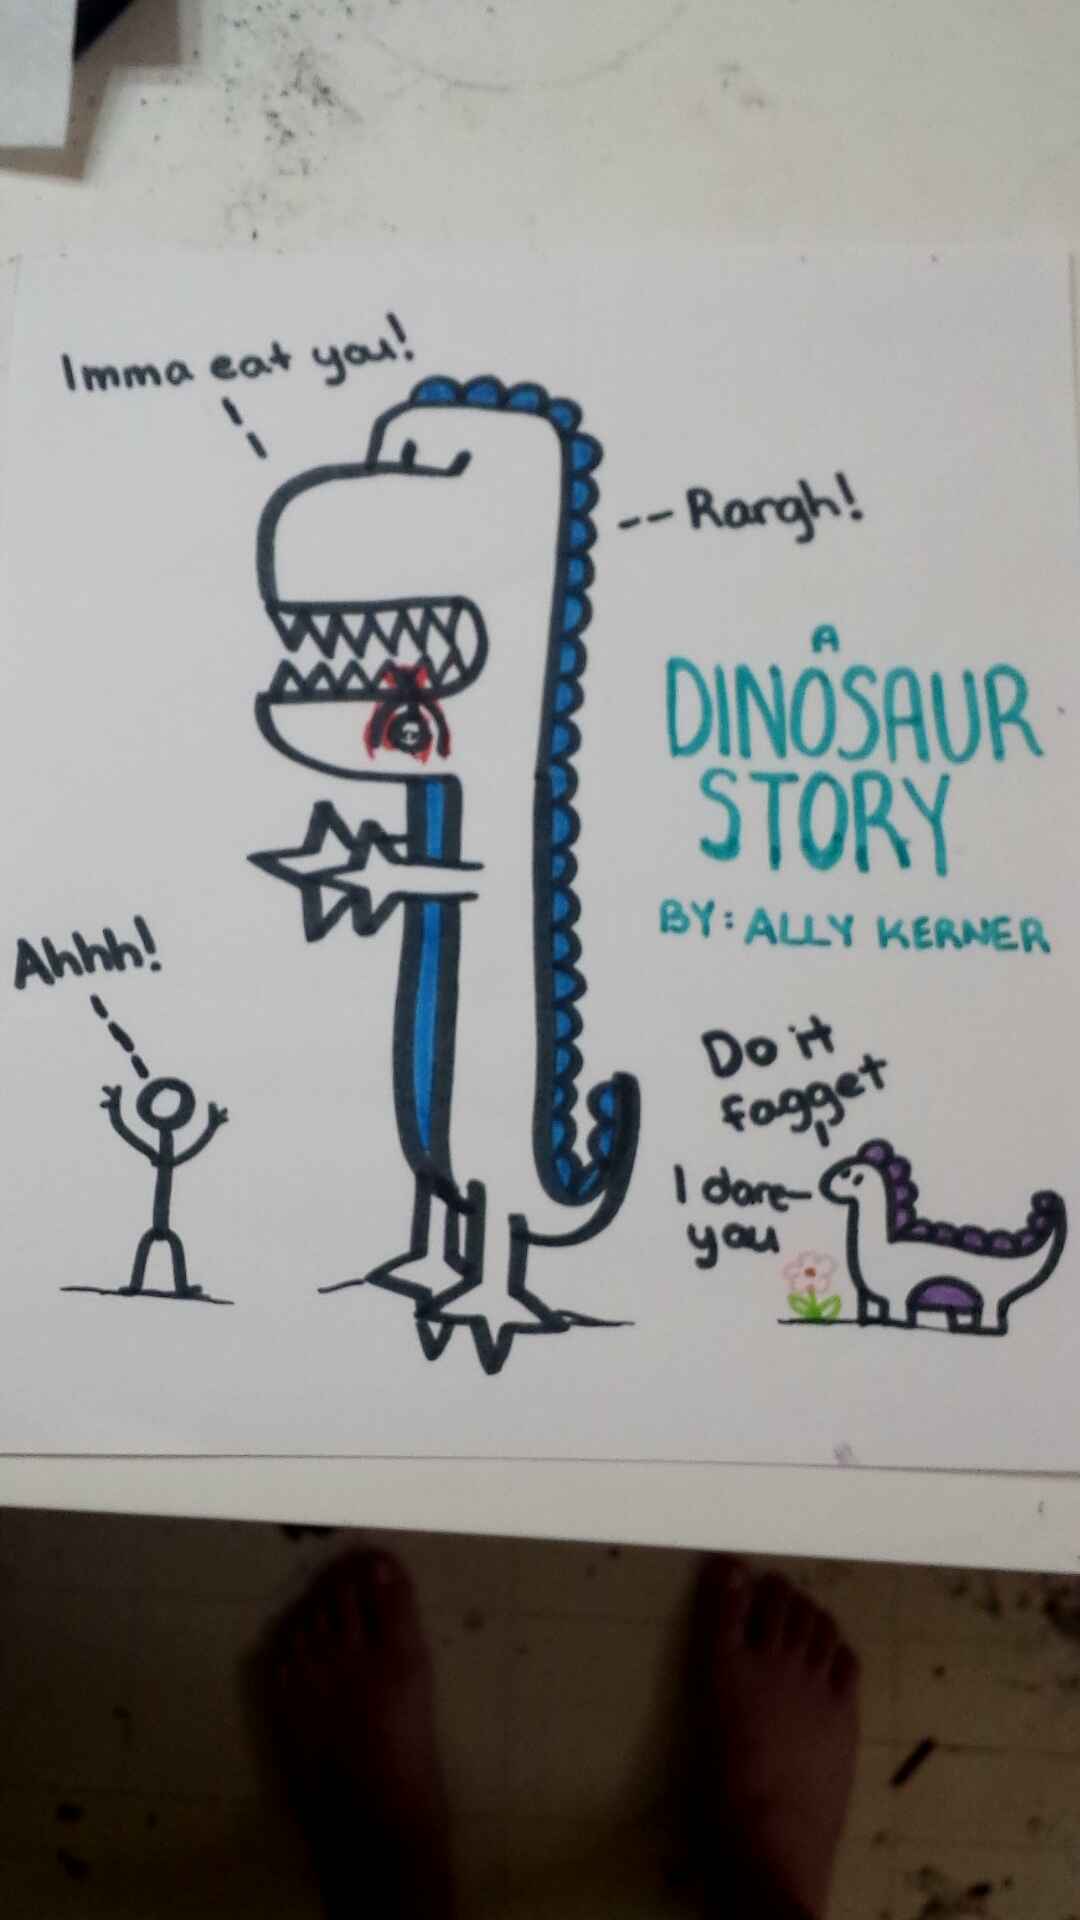 Imma eat you!
--Rargh!
A
DINOSAUR
STORY
BY: ALLY KERNER
Ahhh!
Do it
fagget
I dare
you